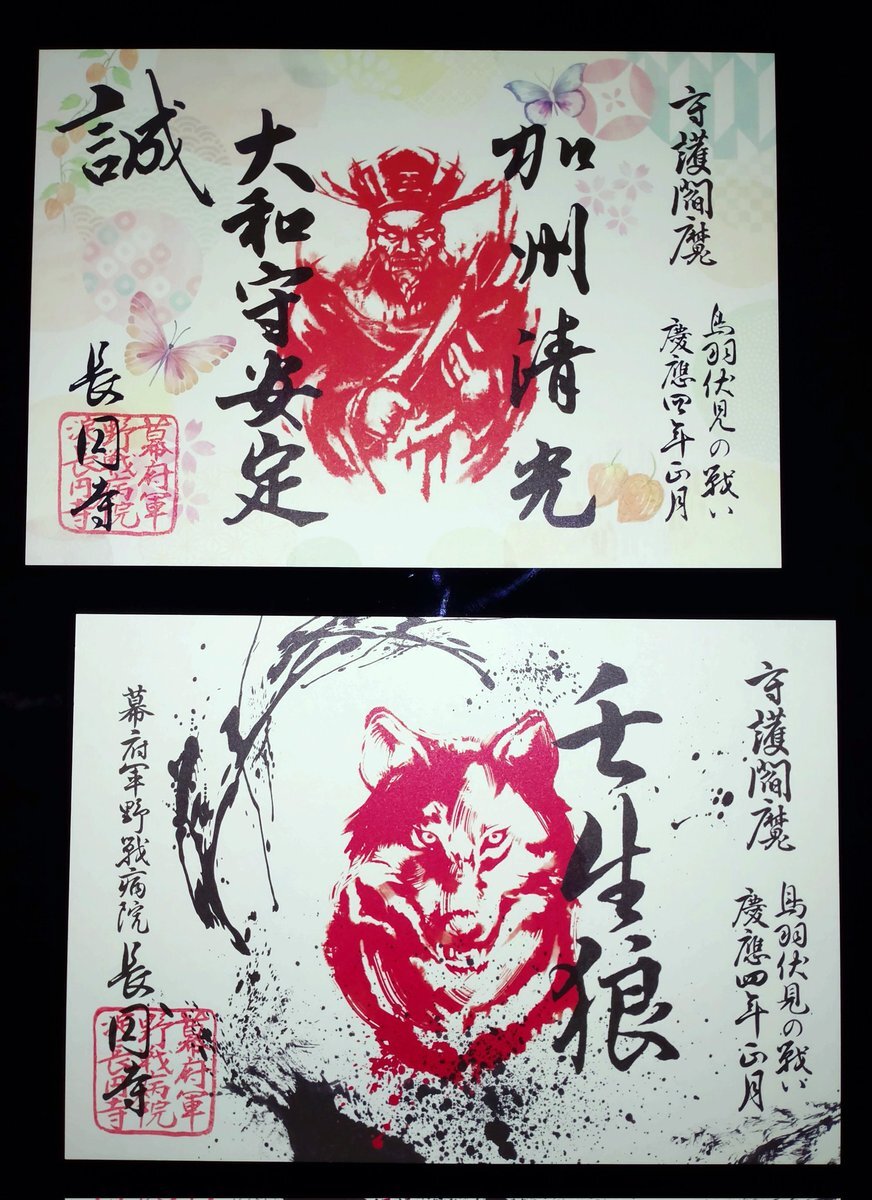 守護閻魔
鳥羽伏見の戦い
慶應四年正月
加州清光
大和守安定
誠
長円寺
幕府軍
野戦病院
長円寺
守護閻魔
鳥羽伏見の戦い
慶應四年正月
壬生狼
幕府軍野戦病院 長円寺
幕府軍
野戦病院
長円寺